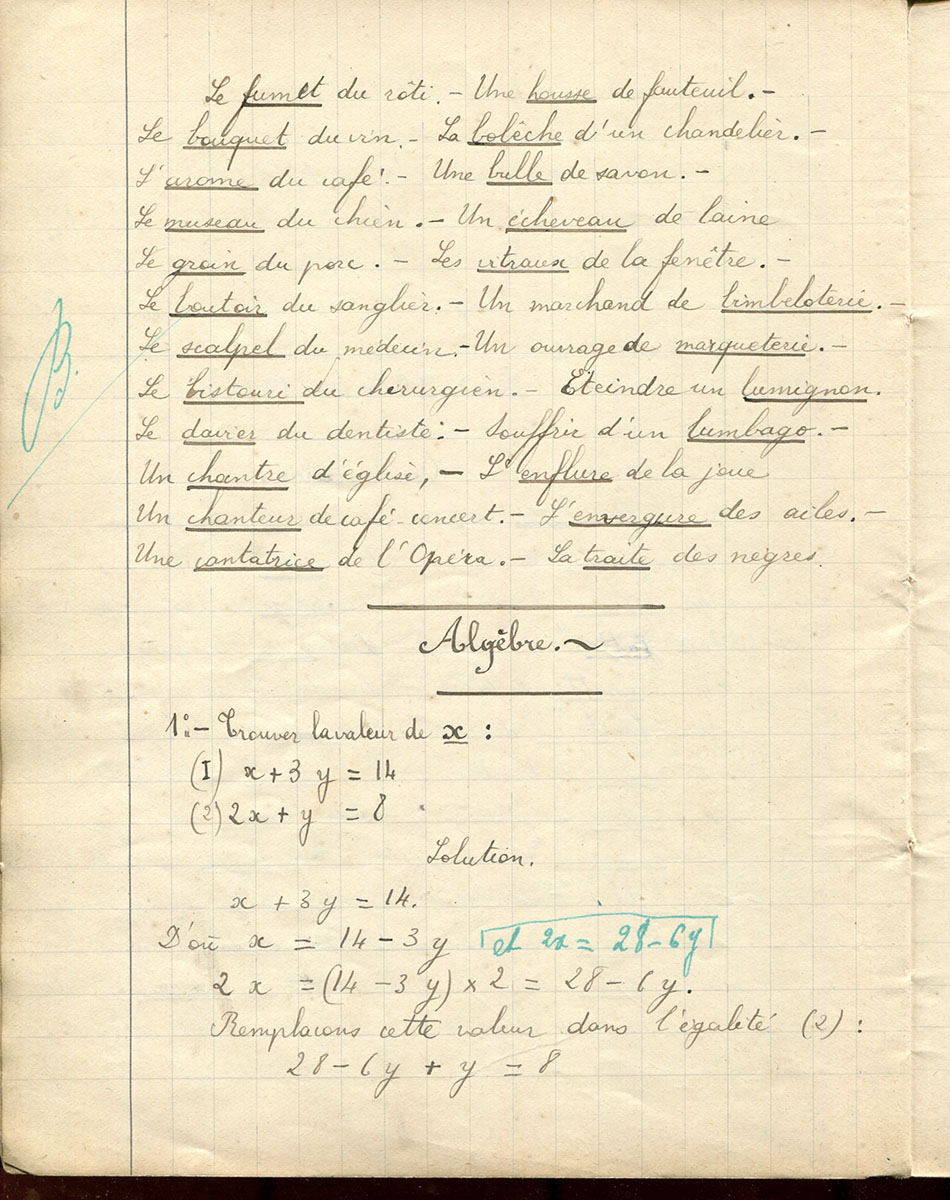 Le fumet du rôti. - Une housse de fauteuil. -
Le bouquet du vin. - La bobèche d'un chandelier. -
L'arome du café. - Une bulle de savon. -
Le museau du chien. - Un écheveau de laine
Le groin du porc. - Les vitraux de la fenêtre. -
Le boutoir du sanglier. - Un marchand de bimbeloterie. -
Le scalpel du médecin. - Un ouvrage de marqueterie. -
Le bistouri du chirurgien. - Eteindre un lumignon.
Le davier du dentiste. - Souffrir d'un lumbago. -
Un chantre d'église, - L'enflure de la joue
Un chanteur de café-concert. - L'envergure des ailes. -
Une cantatrice de l'Opéra. - La traite des nègres.
B.
Algèbre. ~
1º. - Trouver la valeur de x :
(I) x + 3 y = 14
(2) 2x + y = 8
Solution.
x + 3 y = 14.
D'où x = 14 - 3 y et 2x = 28 - 6y
2 x = (14 - 3 y) × 2 = 28 - 6 y.
Remplaçons cette valeur dans l'égalité (2) :
28 - 6 y + y = 8